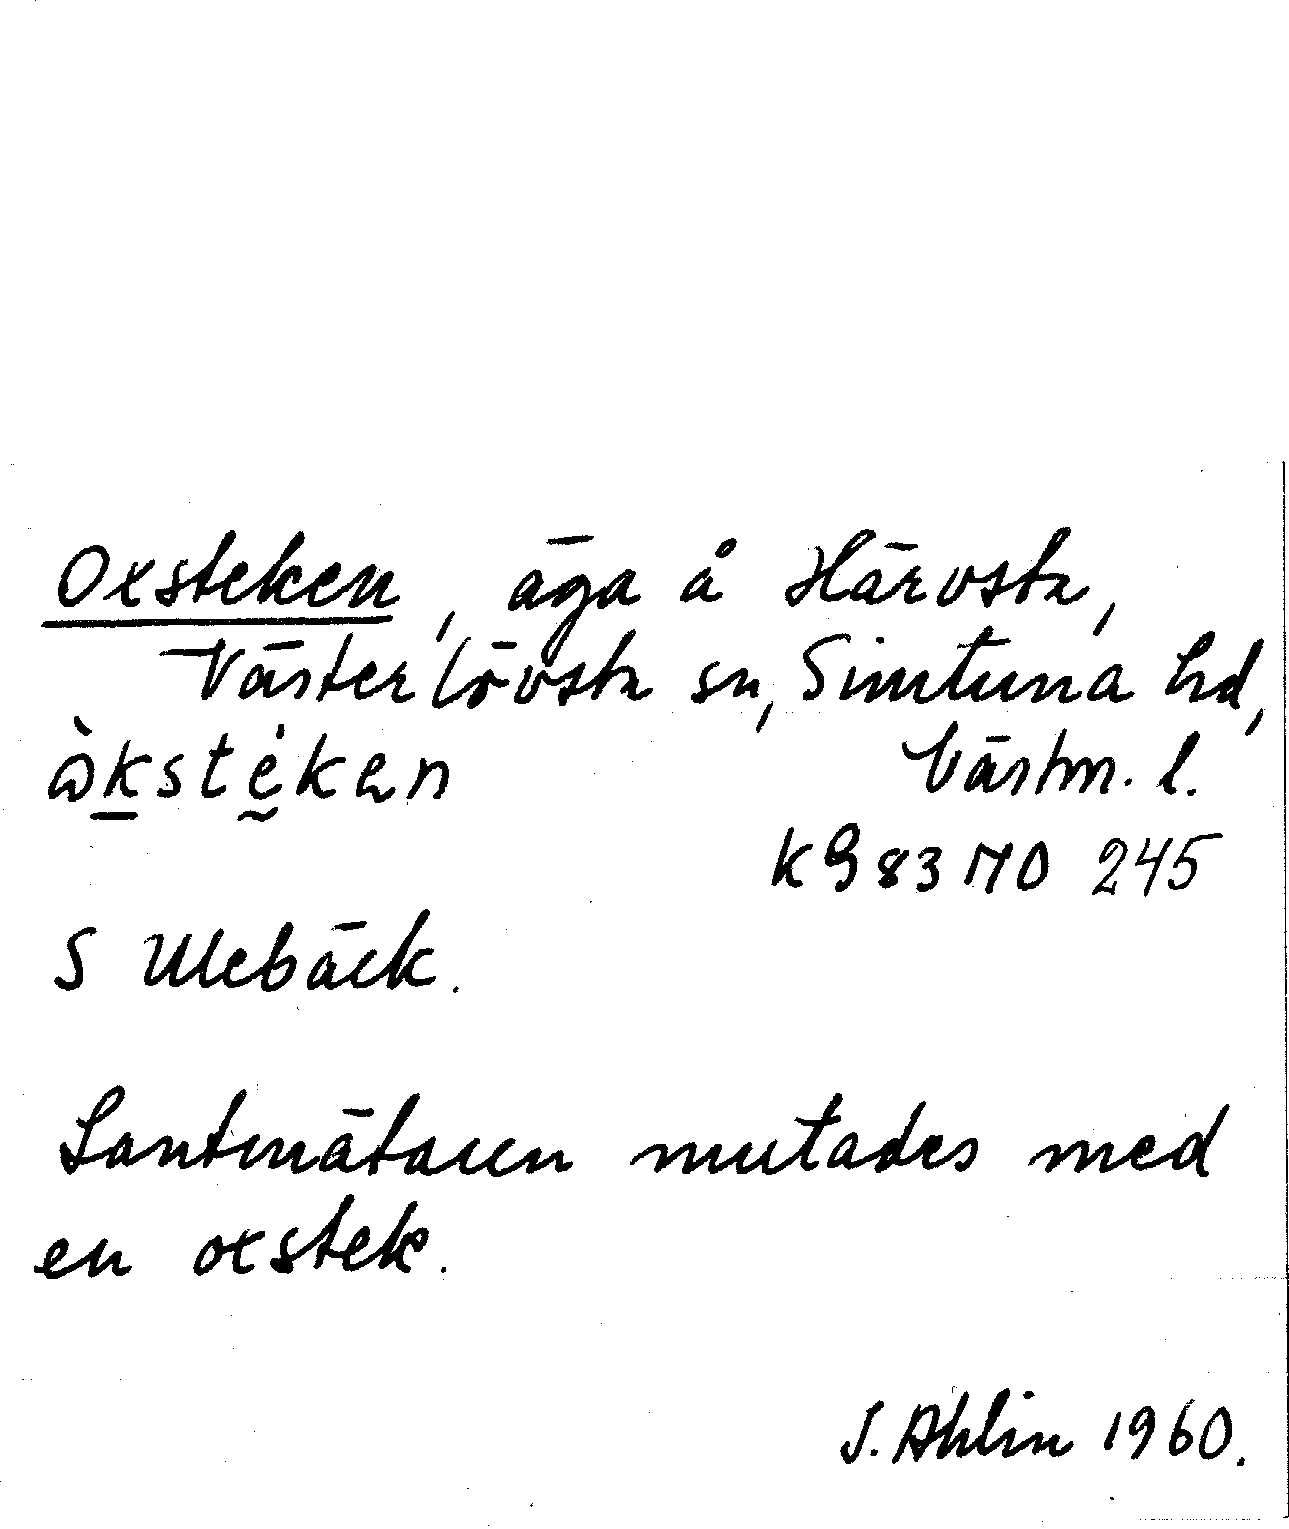 Oxsteken, äga å Härvsta,
Västerlövsta sn, Simtuna hd,
Västm. l.
K9 83 MO 245
S Ulebäck.
Lantmätaren mutades med
en oxstek.
J. Ahlin 1960.